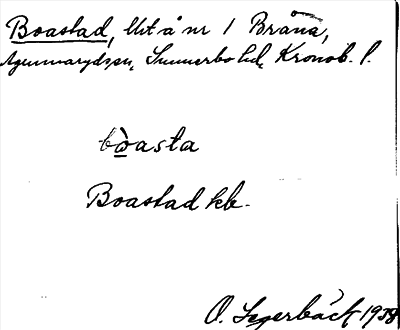 Boastad, lht å nr 1 Bråna,
Agunnarydsn, Sunnerbo hd, Kronob. l.
bo̳asta
Boastad kb.
O. Segerbäck 1938